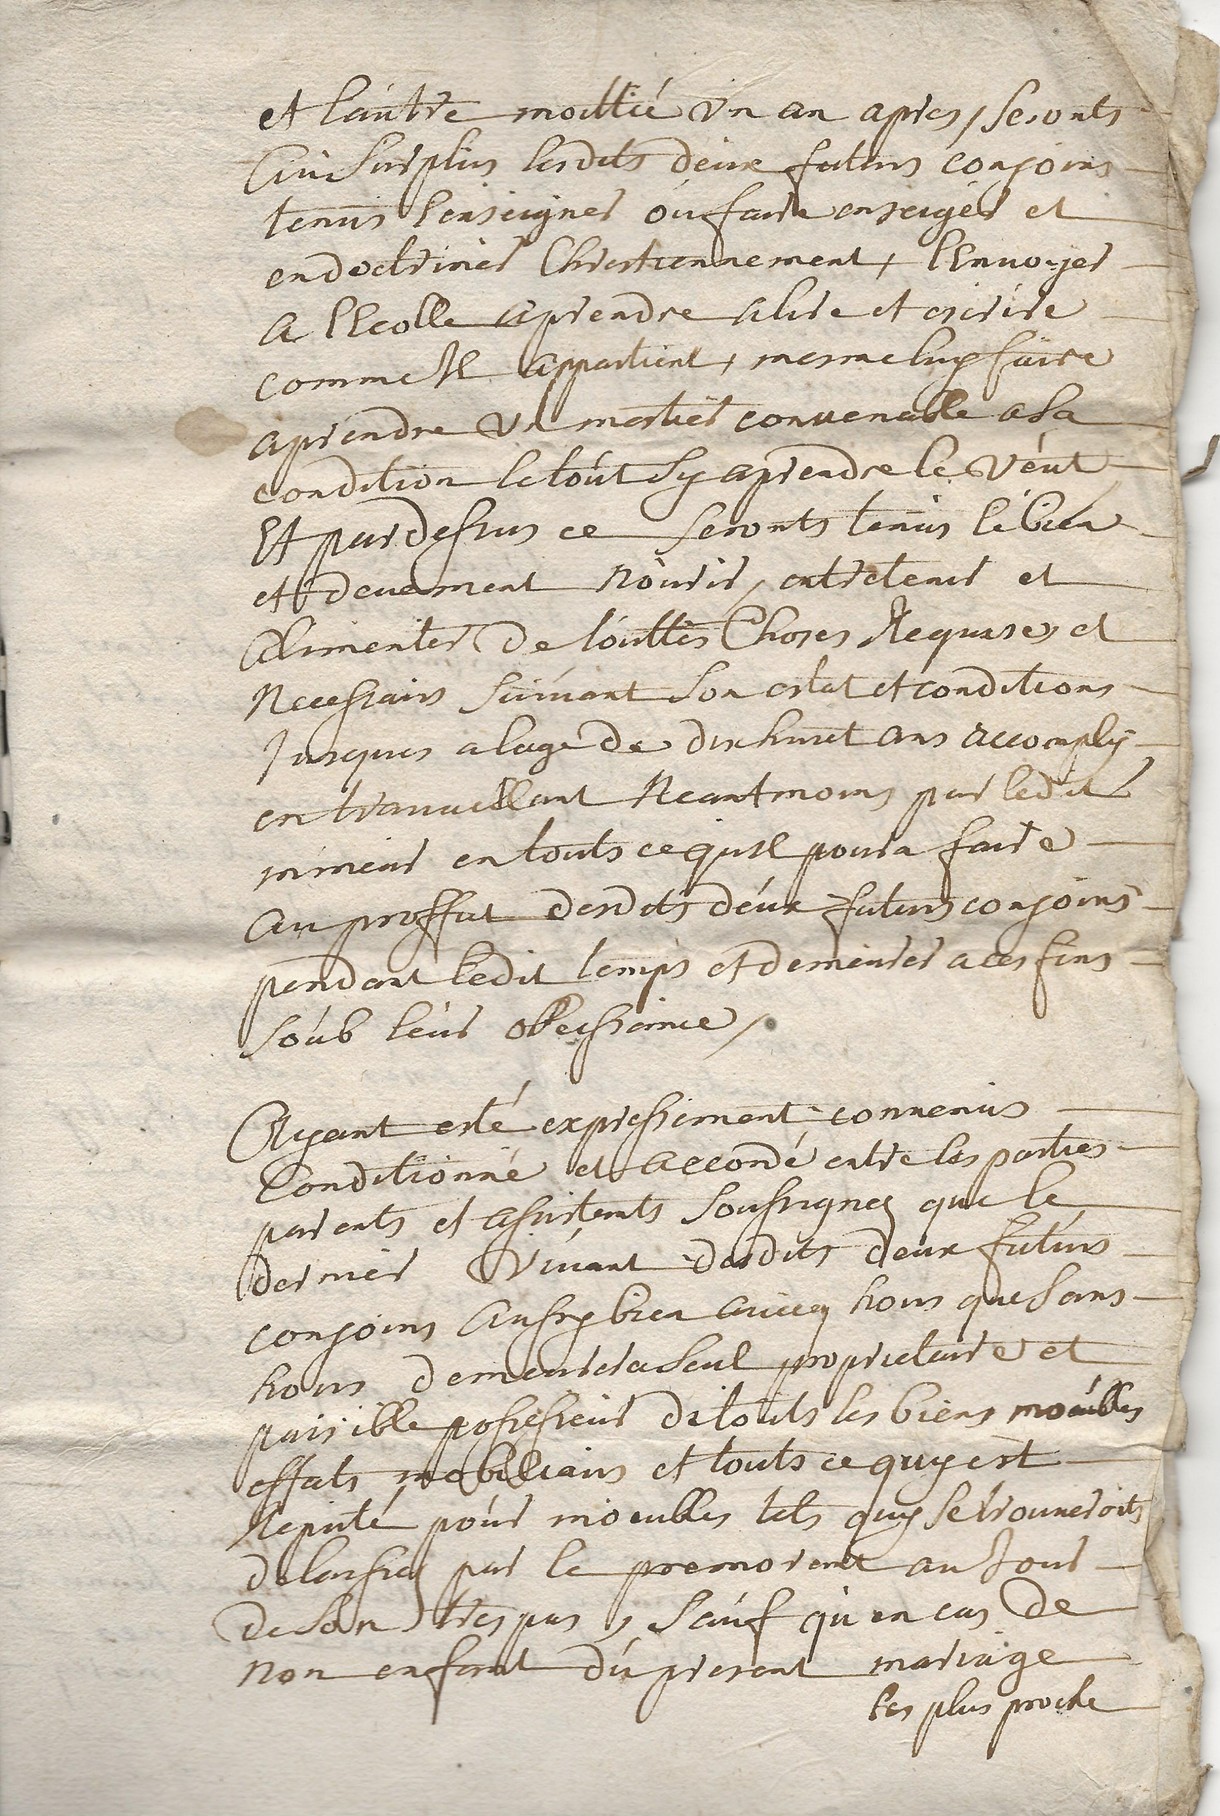 et l'aútre moittié vn an apres, seronts
au surplus lesdits deux futurs conjoins
tenus l'enseigner oú faire enseiger et
endoctriner Chrestiennement, l'Enuoyer
a l'Ecolle aprendre a lire et escrire
comme Il appartient, mesme luy faire
aprendre vn mestier conuenable a sa
condition le toút sy aprendre le veút
Et par dessus ce seronts tenus le bien
et deuement noúrir, entretenir et
alimenter de toúttes Choses Requises et
Necessairs suiuant son estat et conditions
Jusques a l'age de dixhuict ans accomply
en trauaillant Neantmoins par ledit
mineur en touts ce qu'Il poura faire
au proffit desdits deúx futurs conjoins
pendant ledit temps et demeurer a ces fins
soúb leúr obeissance,
Ayant esté expressement conuenus
Conditionné et accordé entre les parties
parents et assistents soussignez que le
dernier viuant desdits deux futúrs
conjoins aussy bien auecq hoirs que sans
hoirs demeurera seul proprietaire et
paisible possesseur de touts les biens moúbles
effats mobiliairs et touts ce quy est
Reputé poúr mioubles tels quy se trouueroits
delaissez par le premorant au Jour
de son trespas, saúf qu'en cas de
non enfant dú present mariage
les plus proche